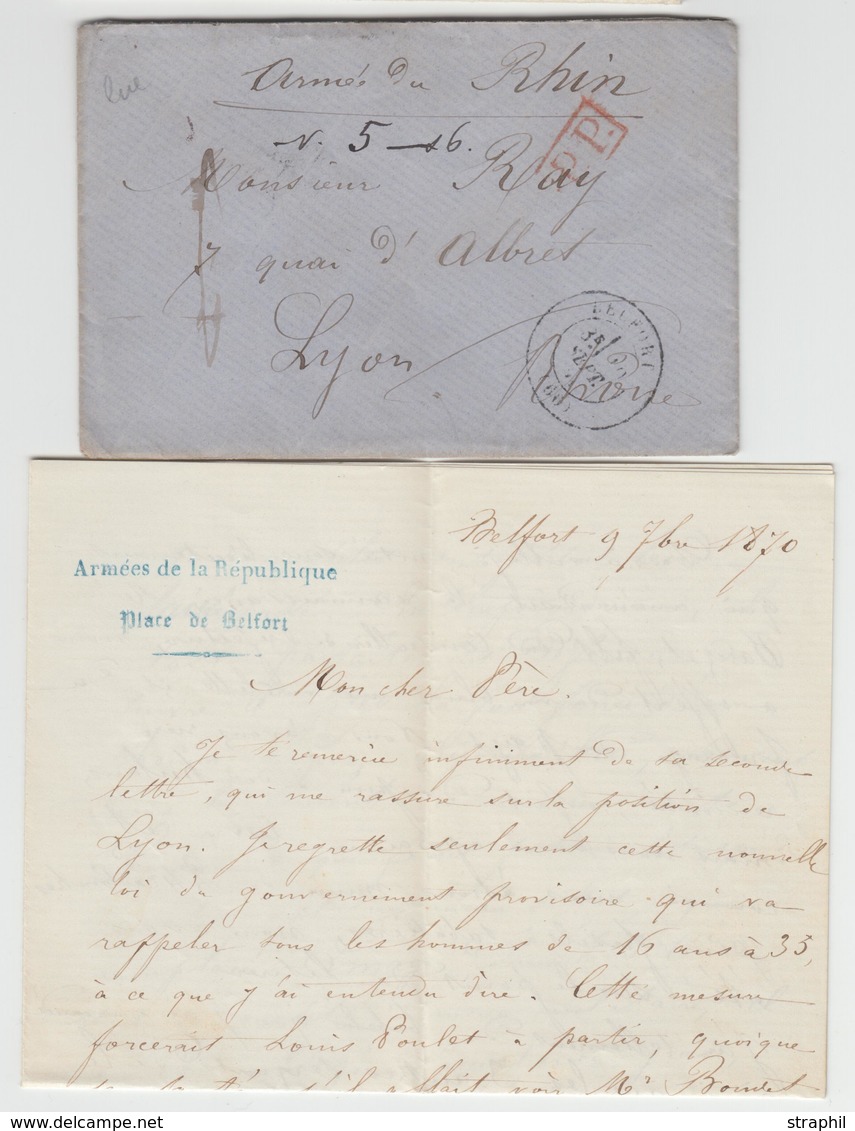 rue
Armée du Rhin
P.P.
Monsieur Ray
7 quai d' Albret
Lyon. Rhône
BELFORT
SEPT.
(66)
Belfort 9 7bre 1870
Armées de la République
Place de Belfort
Mon cher Père.
Je te remercie infiniment de ta seconde
lettre, qui me rassure sur la position de
Lyon. Je regrette seulement cette nouvelle
loi du gouvernement provisoire qui va
rappeler tous les hommes de 16 ans à 35,
à ce que j'ai entendu dire. Cette mesure
forcerait Louis Poulet à partir, quoique
s'il allait voir Mr Boudet
STRAPHIL
delcampe.net